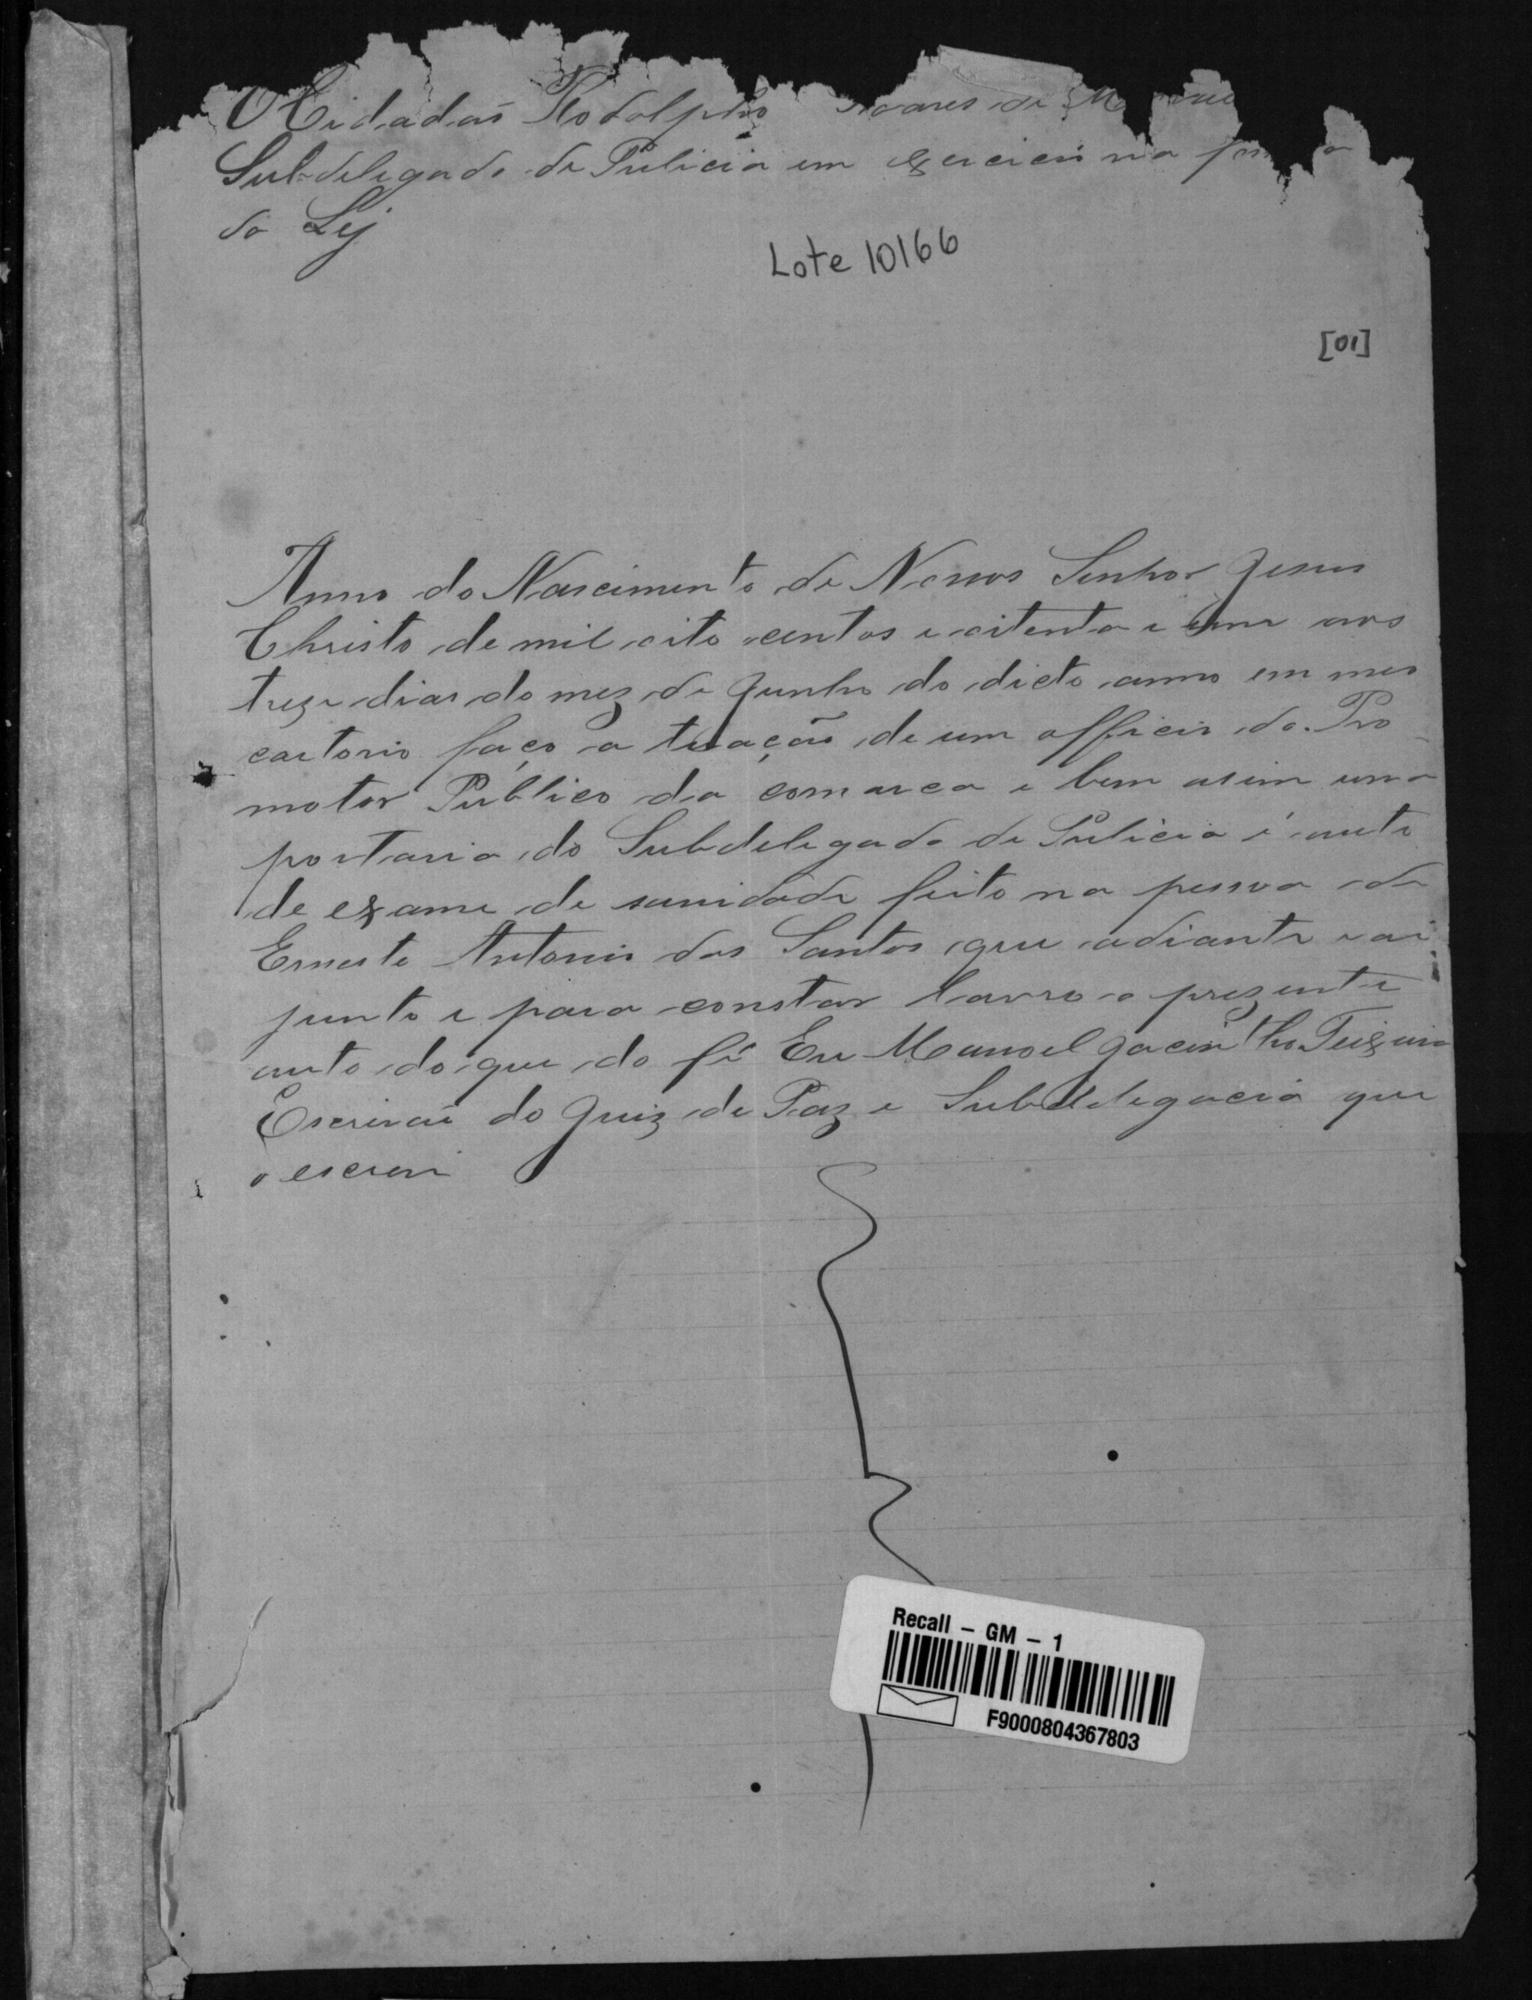 O Cidadaõ Rodolpho Soares de
Subdelegado de Pulicia em exercicio na
da Lej
Lote 10166
[01]
Anno do Nascimento de Nossos Senhor Jesus
Christo de mil oito centos e oitenta e um aos
treze dias do mez de Junho do dicto anno em meo
cartorio faço a tuação de um officio do Pro
motor Publico da comarca e bem asim uma
portaria do Subdelegado de Pulicia é auto
de exame de sanidade feito na pessoa de
Ernesto Antonio dos Santos que adiante vai
junto e para constar lavro o prezente
auto do que do fé Eu Manoel Jacintho Teixeira
Escrivaõ do Juiz de Paz e Subdelegacia que
o escrevi
Recall – GM – 1
F9000804367803